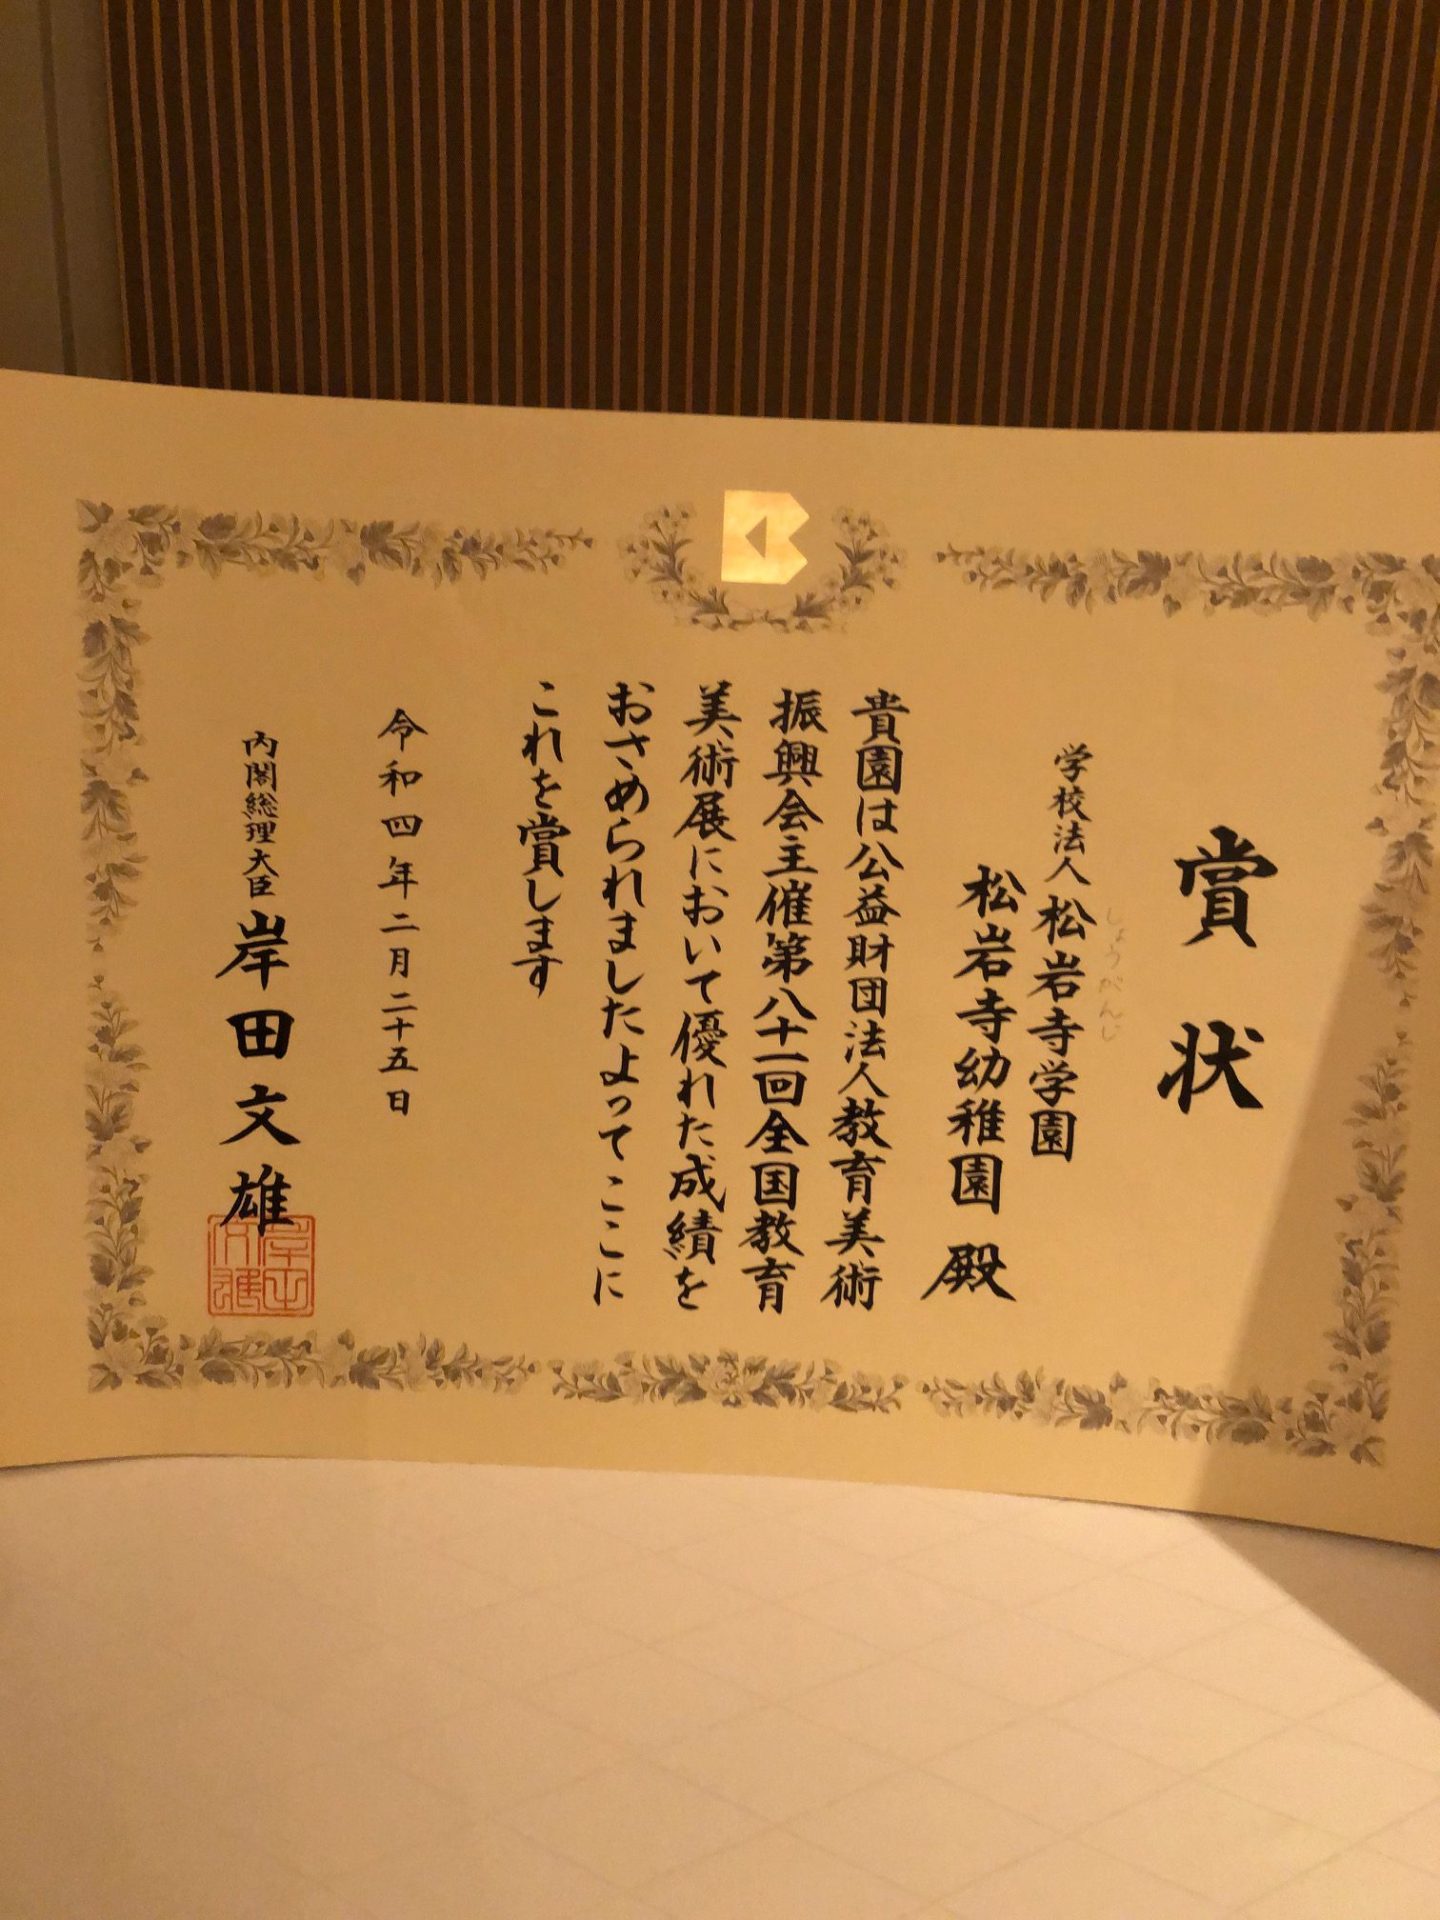 賞状
学校法人松岩寺学園
しょうがんじ
松岩寺幼稚園 殿
貴園は公益財団法人教育美術
振興会主催第八十一回全国教育
美術展において優れた成績を
おさめられましたよってここに
これを賞します
令和四年二月二十五日
内閣総理大臣 岸田文雄